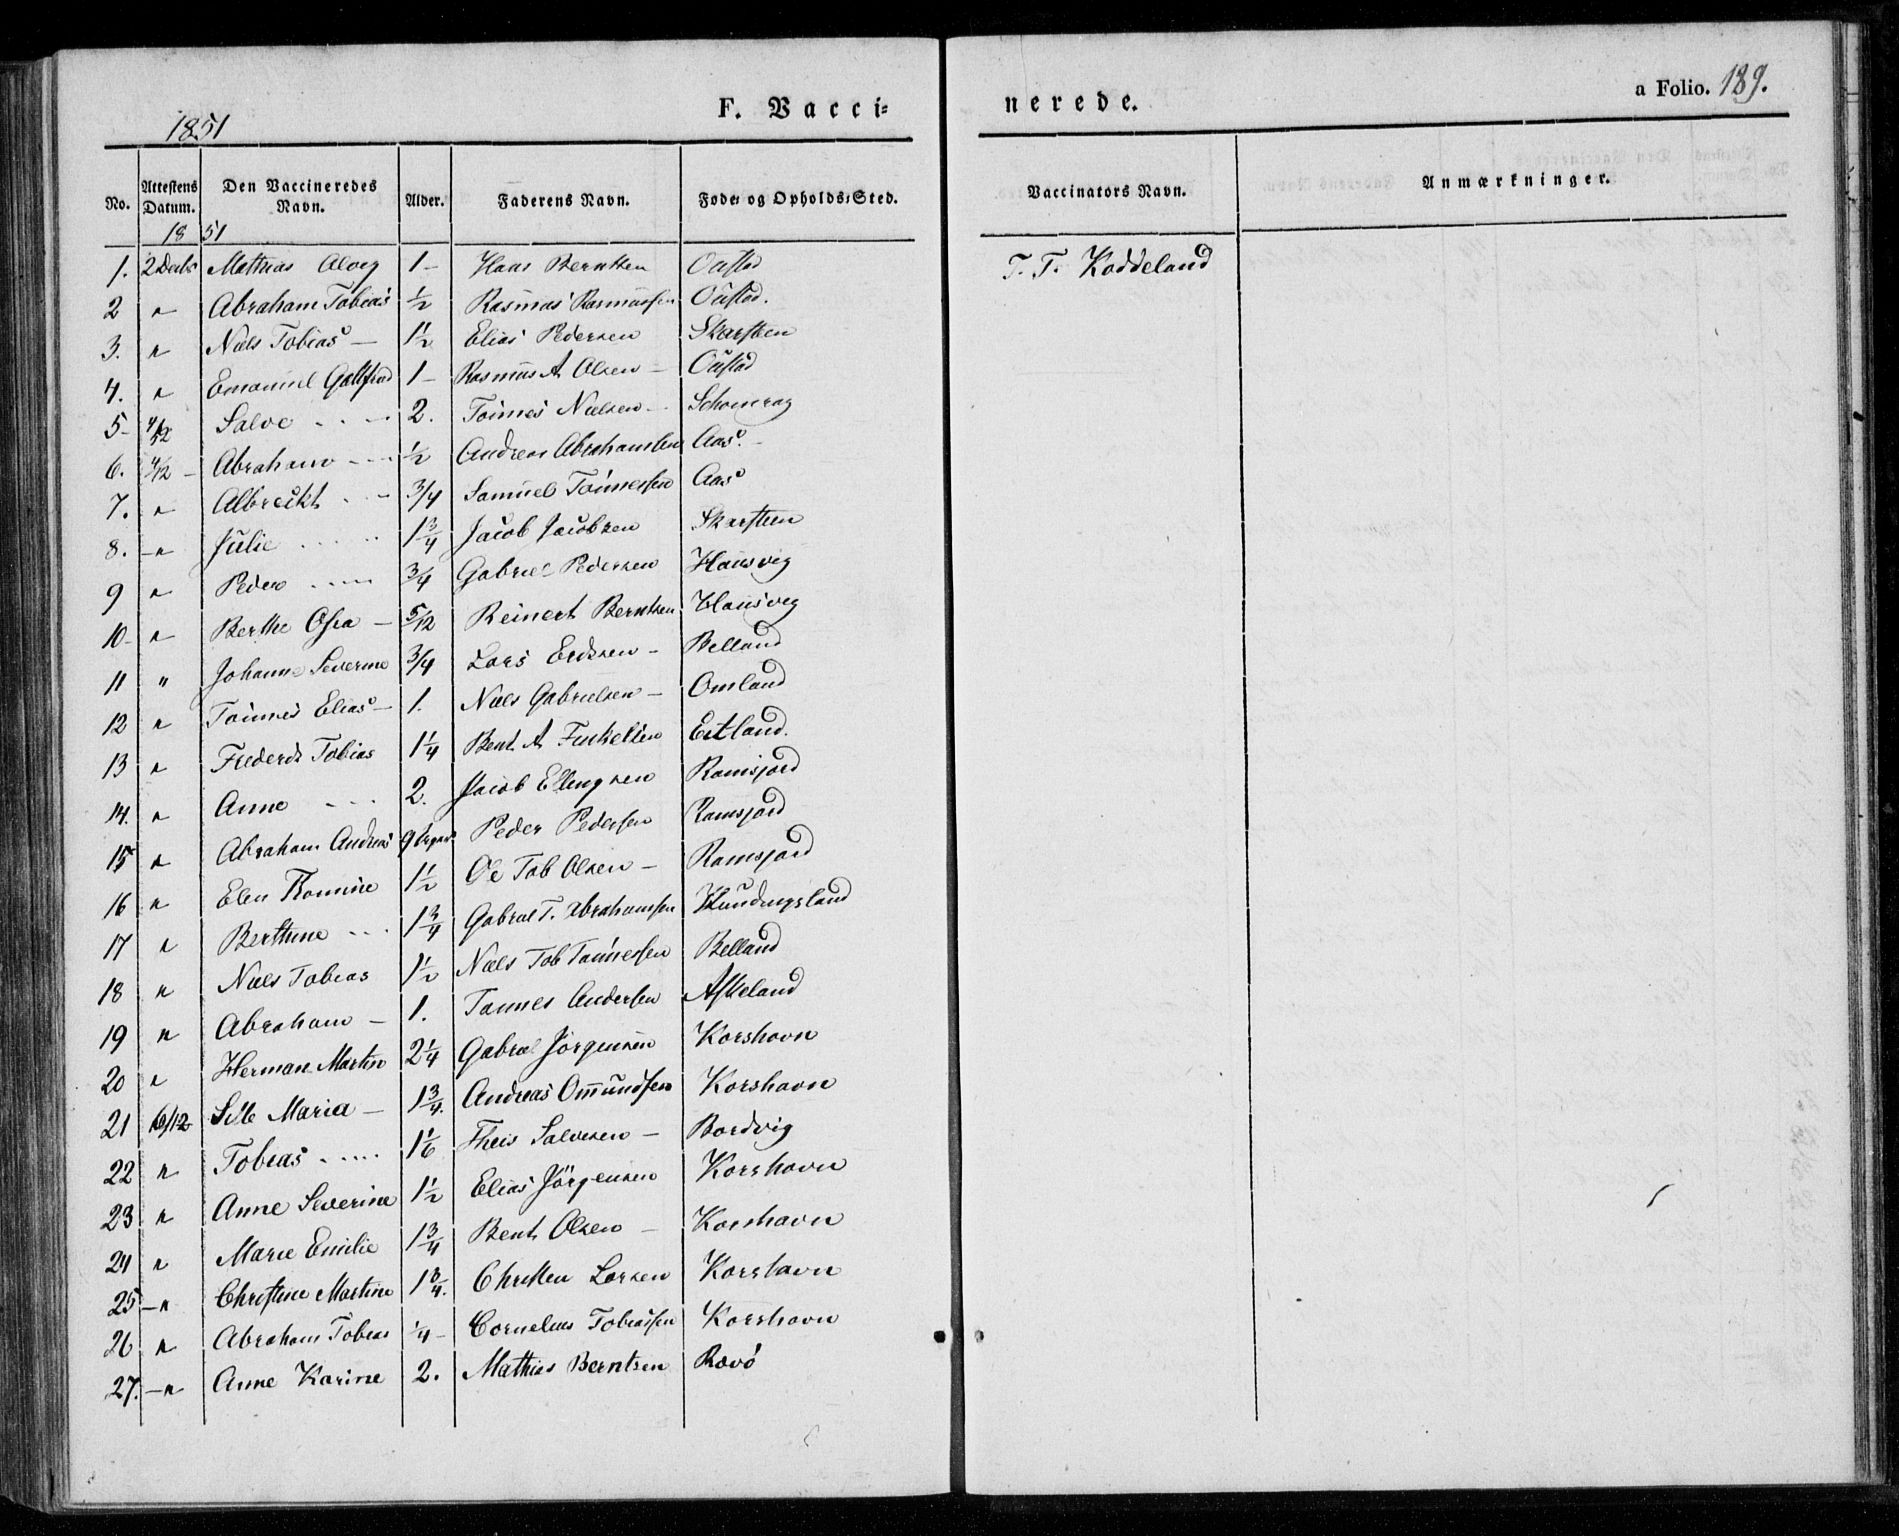 1851
F. Vacci=
nerede.
a Folio. 189.
No. Attestens Datum. Den Vaccineredes Navn. Alder. Faderens Navn. Føde- og Opholds-Sted. Vaccinators Navn. Anmærkninger.
1851
1. 2 Decbr Mathias 1 - Hans Berntsen T. T. Koddeland
2 " Abraham Tobias ½ Rasmus Rasmussen
3. " Niels Tobias - 1½ Elias Pedersen Skarsteen
4. " Emanuel 1 - Rasmus A Olsen -
5 - 4/12 Salve - - - 2. Tönnes Nielsen -
6. 4/12 - Abraham - - - ½ Andreas Abrahamsen Aas. -
7. " Albreckt - - 3/4 Samuel Tönnessen Aas
8. - " Julie 1 3/4 Jacob Jacobsen Skarsteen
9 " Peder 3/4 Gabriel Pedersen Hausvig
10 - " Berthe - 5/12 Reinert Berntsen Hausvig
11 " Johanne Severine 3/4 Lars - Belland
12 " Tönnes Elias - 1. Niels Gabrielsen - Omland
13 " Frederik Tobias 1 1/4 Bent A Eitland.
14. " Anne - - - 2. Jacob Ellingsen Ramsjord
15 " Abraham Andreas 9 Peder Pedersen Ramsjord
16 " Elen 1½ Ole Tob Olsen - Ramsjord
17 " Berthine - - - 1 3/4 Gabriel T. Abrahamsen
18 " Niels Tobias 1½ Niels Tob Tönnessen Belland
19 " Abraham - 1. Tonnes Andersen Askeland
20 " Herman Martin 2 1/4 Gabriel Jörgensen Korshavn
21 6/12 Maria - 1 3/4. Andreas Omundsen Korshavn
22 " Tobias 1 1/6 Theis Salvesen - Bordvig
23 " Anne Severine 1½ Elias Jörgensen Korshavn
24 " Marie Emilie 1 3/4 Bent Olsen - Korshavn
25 - " Christine Martine 1 3/4. Christen Larsen Korshavn
26 " Abraham Tobias 1/4 - Cornelius Tobiassen Korshavn
27. - " Anne Karine 2. Mathias Berntsen Rævö